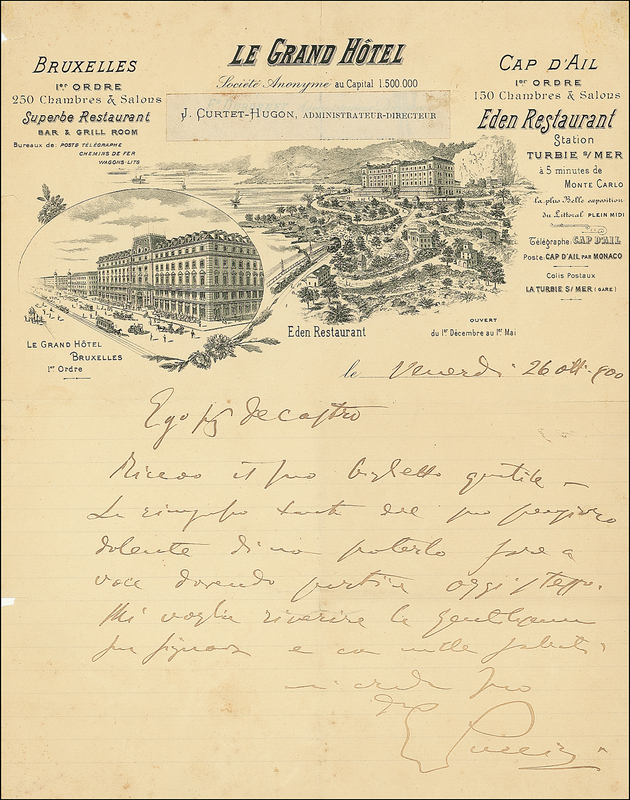 LE GRAND HÔTEL
Société Anonyme au Capital 1.500.000
J. CURTET-HUGON, ADMINISTRATEUR-DIRECTEUR
BRUXELLES
1er ORDRE
250 Chambres & Salons
Superbe Restaurant
BAR & GRILL ROOM
Bureaux de: POSTE TÉLÉGRAPHE
CHEMINS DE FER
WAGONS-LITS
CAP D'AIL
1er ORDRE
150 Chambres & Salons
Eden Restaurant
Station
TURBIE S/MER
à 5 minutes de
MONTE CARLO
la plus Belle exposition
du Littoral PLEIN MIDI
Télégraphe: CAP D'AIL
Poste: CAP D'AIL PAR MONACO
Colis Postaux
LA TURBIE S/MER (GARE)
LE GRAND HÔTEL
BRUXELLES
1er Ordre
Eden Restaurant
OUVERT
du 1er Décembre au 1er Mai
le Venerdi 26 ott. 900
Decastro
Ricevo il suo biglietto gentile
La ringrazio tanto del suo pensiero
dolente di no poterlo fare a
voce dovendo partire oggi stesso.
Mi voglia riverire la gentilissima
sua signora e con mille saluti
mi creda suo
Puccini